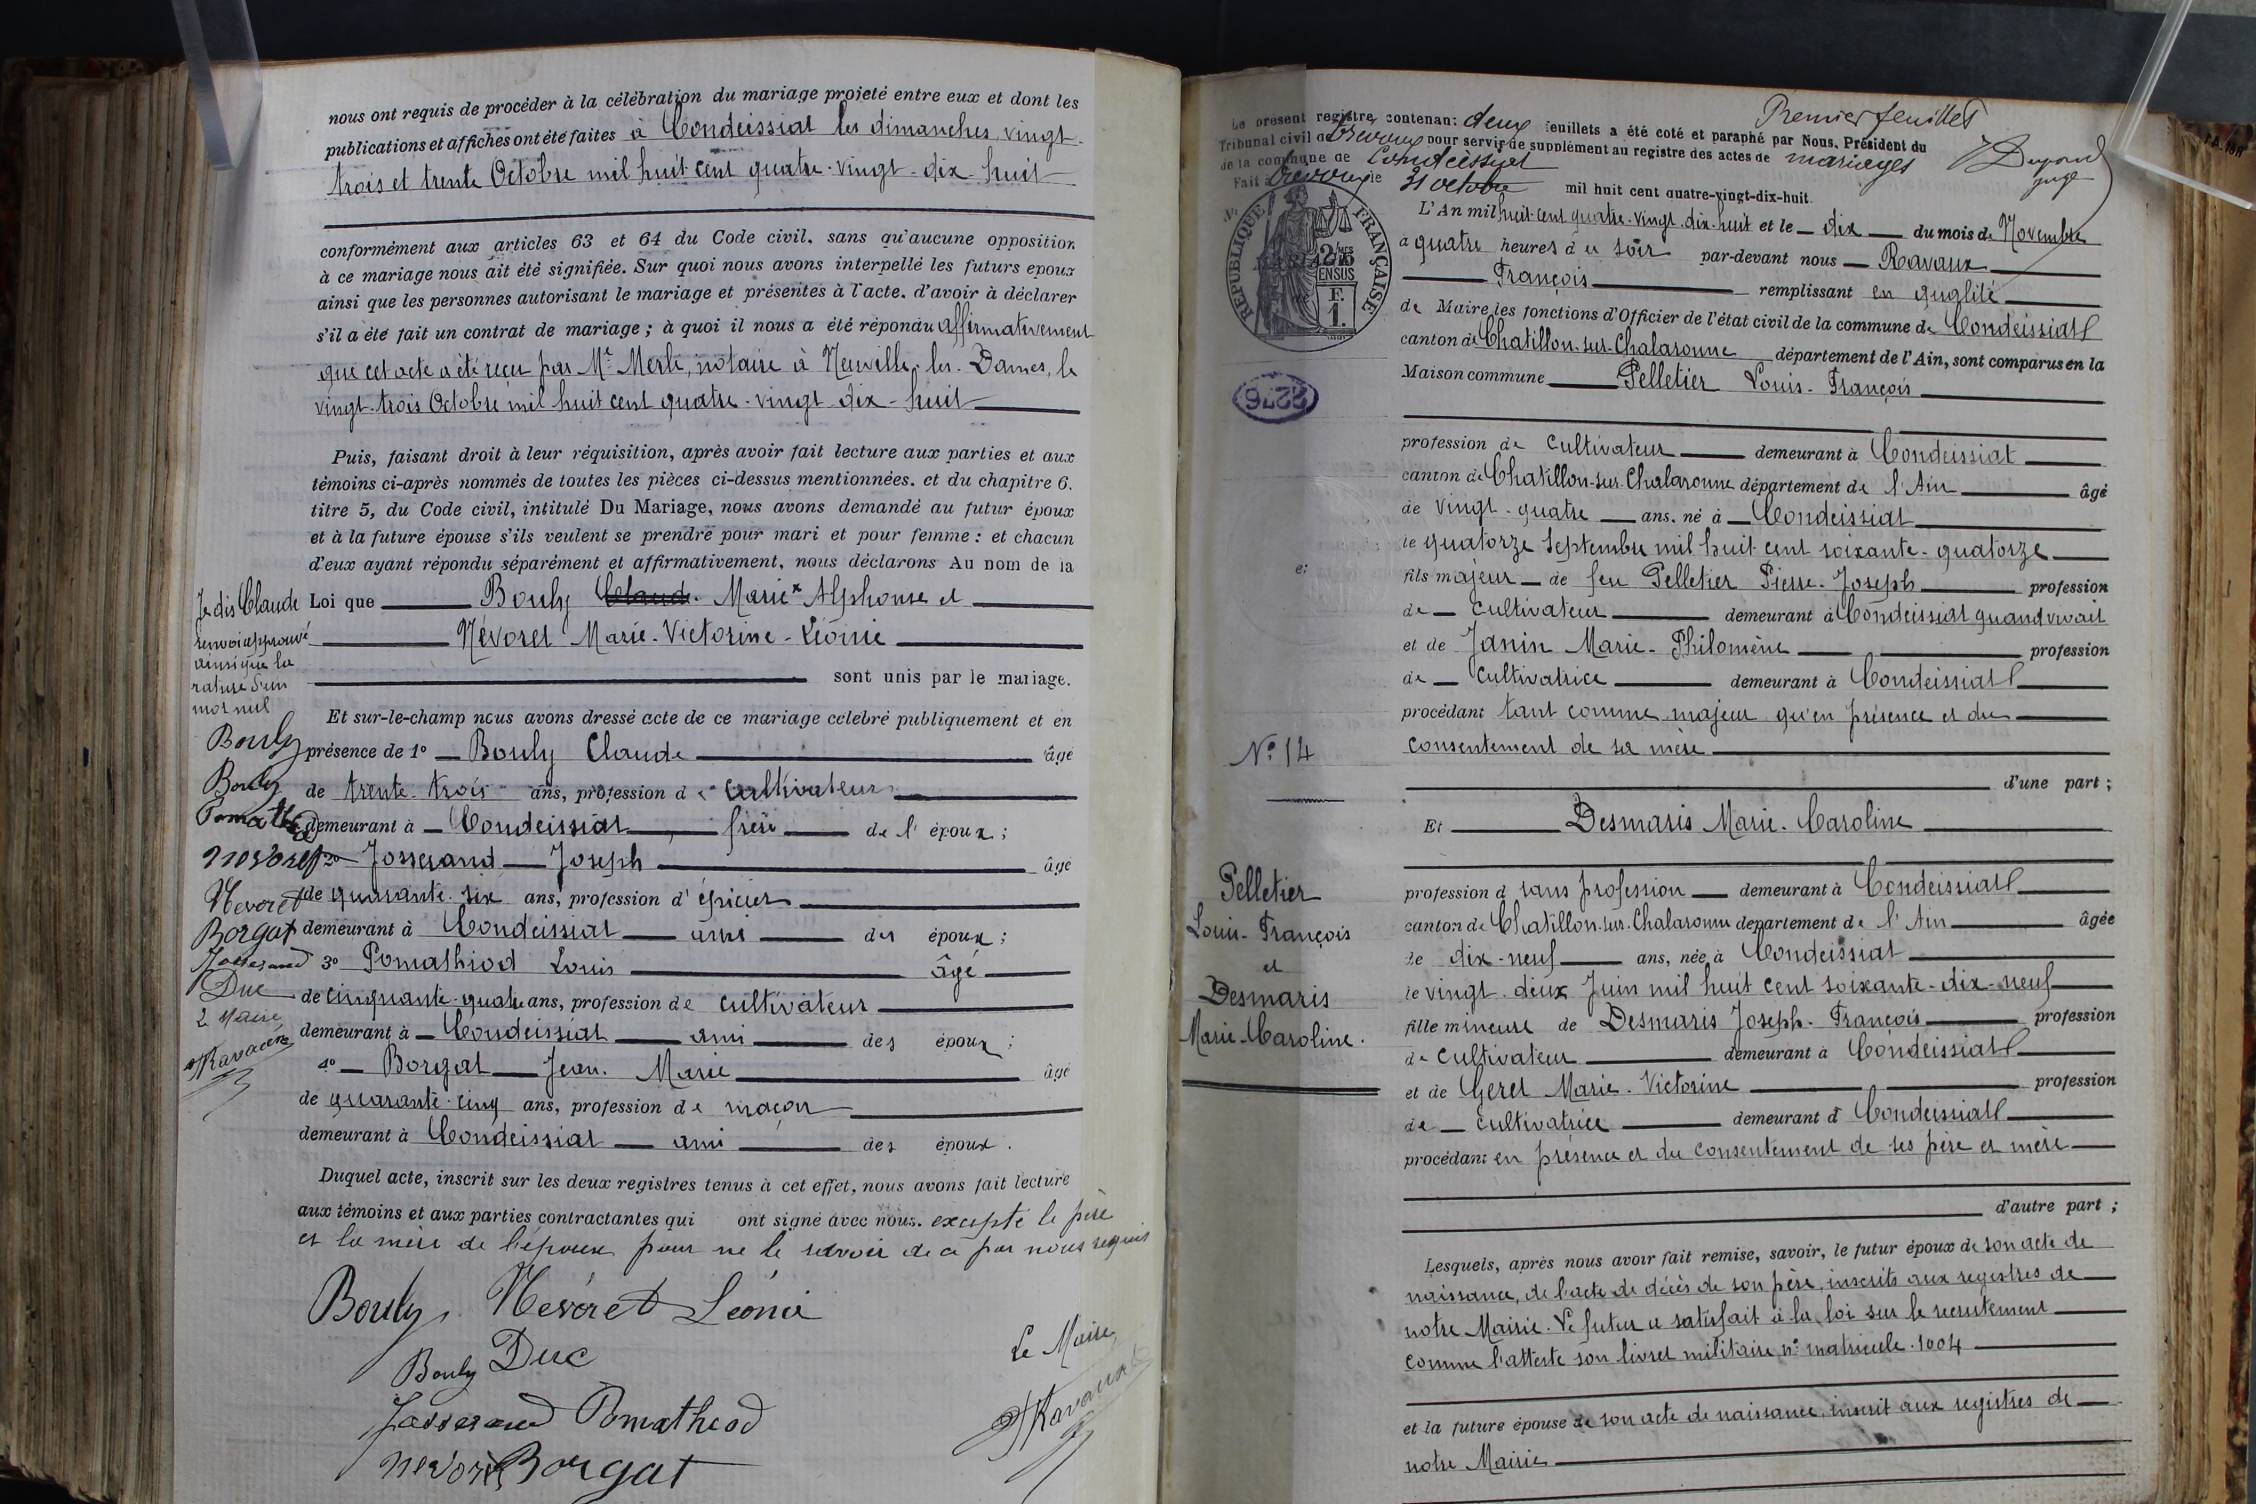 nous ont requis de procéder à la célébration du mariage projeté entre eux et dont les
publications et affiches ont été faites à Condeissiat les dimanches vingt-
trois et trente Octobre mil huit cent quatre-vingt-dix-huit
conformément aux articles 63 et 64 du Code civil, sans qu'aucune opposition
à ce mariage nous ait été signifiée. Sur quoi nous avons interpellé les futurs epoux
ainsi que les personnes autorisant le mariage et présentes à l'acte, d'avoir à déclarer
s'il a été fait un contrat de mariage ; à quoi il nous a été répondu affirmativement
que cet acte a été reçu par Me Merle, notaire à Neuville-les-Dames, le
vingt-trois Octobre mil huit cent quatre-vingt dix-huit
Puis, faisant droit à leur réquisition, après avoir fait lecture aux parties et aux
témoins ci-après nommés de toutes les pièces ci-dessus mentionnées, et du chapitre 6.
titre 5, du Code civil, intitulé Du Mariage, nous avons demandé au futur époux
et à la future épouse s'ils veulent se prendre pour mari et pour femme : et chacun
d'eux ayant répondu séparément et affirmativement, nous déclarons Au nom de la
Loi que Bouly Claude Marie x Alphonse et
Névoret Marie-Victorine-Léonie
sont unis par le mariage.
Je dis Claude
renvoi approuvé
ainsi que la
rature d'un
mot nul
Bouly
Bouly
Pomathiod
névoret
Névoret
Borgat
Josserand
Duc
Le Maire
Ravaux
Et sur-le-champ nous avons dressé acte de ce mariage célébré publiquement et en
présence de 1º Bouly Claude âgé
de trente-trois ans, profession de cultivateur
demeurant à Condeissiat, frère de l'époux ;
2º Josserand Joseph âgé
de quarante-six ans, profession d'épicier
demeurant à Condeissiat ami des époux ;
3º Pomathiod Louis âgé
de cinquante-quatre ans, profession de cultivateur
demeurant à Condeissiat ami des époux ;
4º Borgat Jean-Marie âgé
de quarante-cinq ans, profession de maçon
demeurant à Condeissiat ami des époux.
Duquel acte, inscrit sur les deux registres tenus à cet effet, nous avons fait lecture
aux témoins et aux parties contractantes qui ont signé avec nous. excepté le père
et la mère de l'époux pour ne le savoir de ce par nous requis
Bouly Névoret Léonie
Bouly Duc
Le Maire
Josserand Pomathiod
Ravaux
névoret Borgat
Premier feuillet
Le présent registre contenant deux feuillets a été coté et paraphé par Nous, Président du
Tribunal civil de Trévoux pour servir de supplément au registre des actes de mariages
de la commune de Condeissiat
juge
Fait à Trévoux le 31 octobre mil huit cent quatre-vingt-dix-huit
RÉPUBLIQUE FRANÇAISE
EN SUS
F.
1.
2276
L'An mil huit-cent quatre-vingt-dix-huit et le dix du mois de Novembre
à quatre heures du soir par-devant nous Ravaux
François remplissant en qualité
de Maire les fonctions d'Officier de l'état civil de la commune de Condeissiat
canton de Chatillon-sur-Chalaronne département de l'Ain, sont comparus en la
Maison commune Pelletier Louis-François
profession de cultivateur demeurant à Condeissiat
canton de Chatillon-sur-Chalaronne département de l'Ain âgé
de vingt-quatre ans, né à Condeissiat
le quatorze Septembre mil huit cent soixante-quatorze
fils majeur de feu Pelletier Pierre-Joseph profession
de cultivateur demeurant à Condeissiat quand vivait
et de Janin Marie-Philomène profession
de cultivatrice demeurant à Condeissiat
procédant tant comme majeur qu'en présence et du
consentement de sa mère
d'une part ;
Nº 14
Pelletier
Louis-François
et
Desmaris
Marie-Caroline.
Et Desmaris Marie-Caroline
profession d sans profession demeurant à Condeissiat
canton de Chatillon-sur-Chalaronne département de l'Ain âgée
de dix-neuf ans, née à Condeissiat
le vingt-deux Juin mil huit cent soixante-dix-neuf
fille mineure de Desmaris Joseph-François profession
de cultivateur demeurant à Condeissiat
et de Geret Marie-Victorine profession
de cultivatrice demeurant à Condeissiat
procédant en présence et du consentement de ses père et mère
d'autre part ;
Lesquels, après nous avoir fait remise, savoir, le futur époux de son acte de
naissance, de l'acte de décès de son père, inscrits aux registres de
notre Mairie. Le futur a satisfait à la loi sur le recrutement
comme l'atteste son livret militaire nº matricule 1004
et la future épouse de son acte de naissance, inscrit aux registres de
notre Mairie